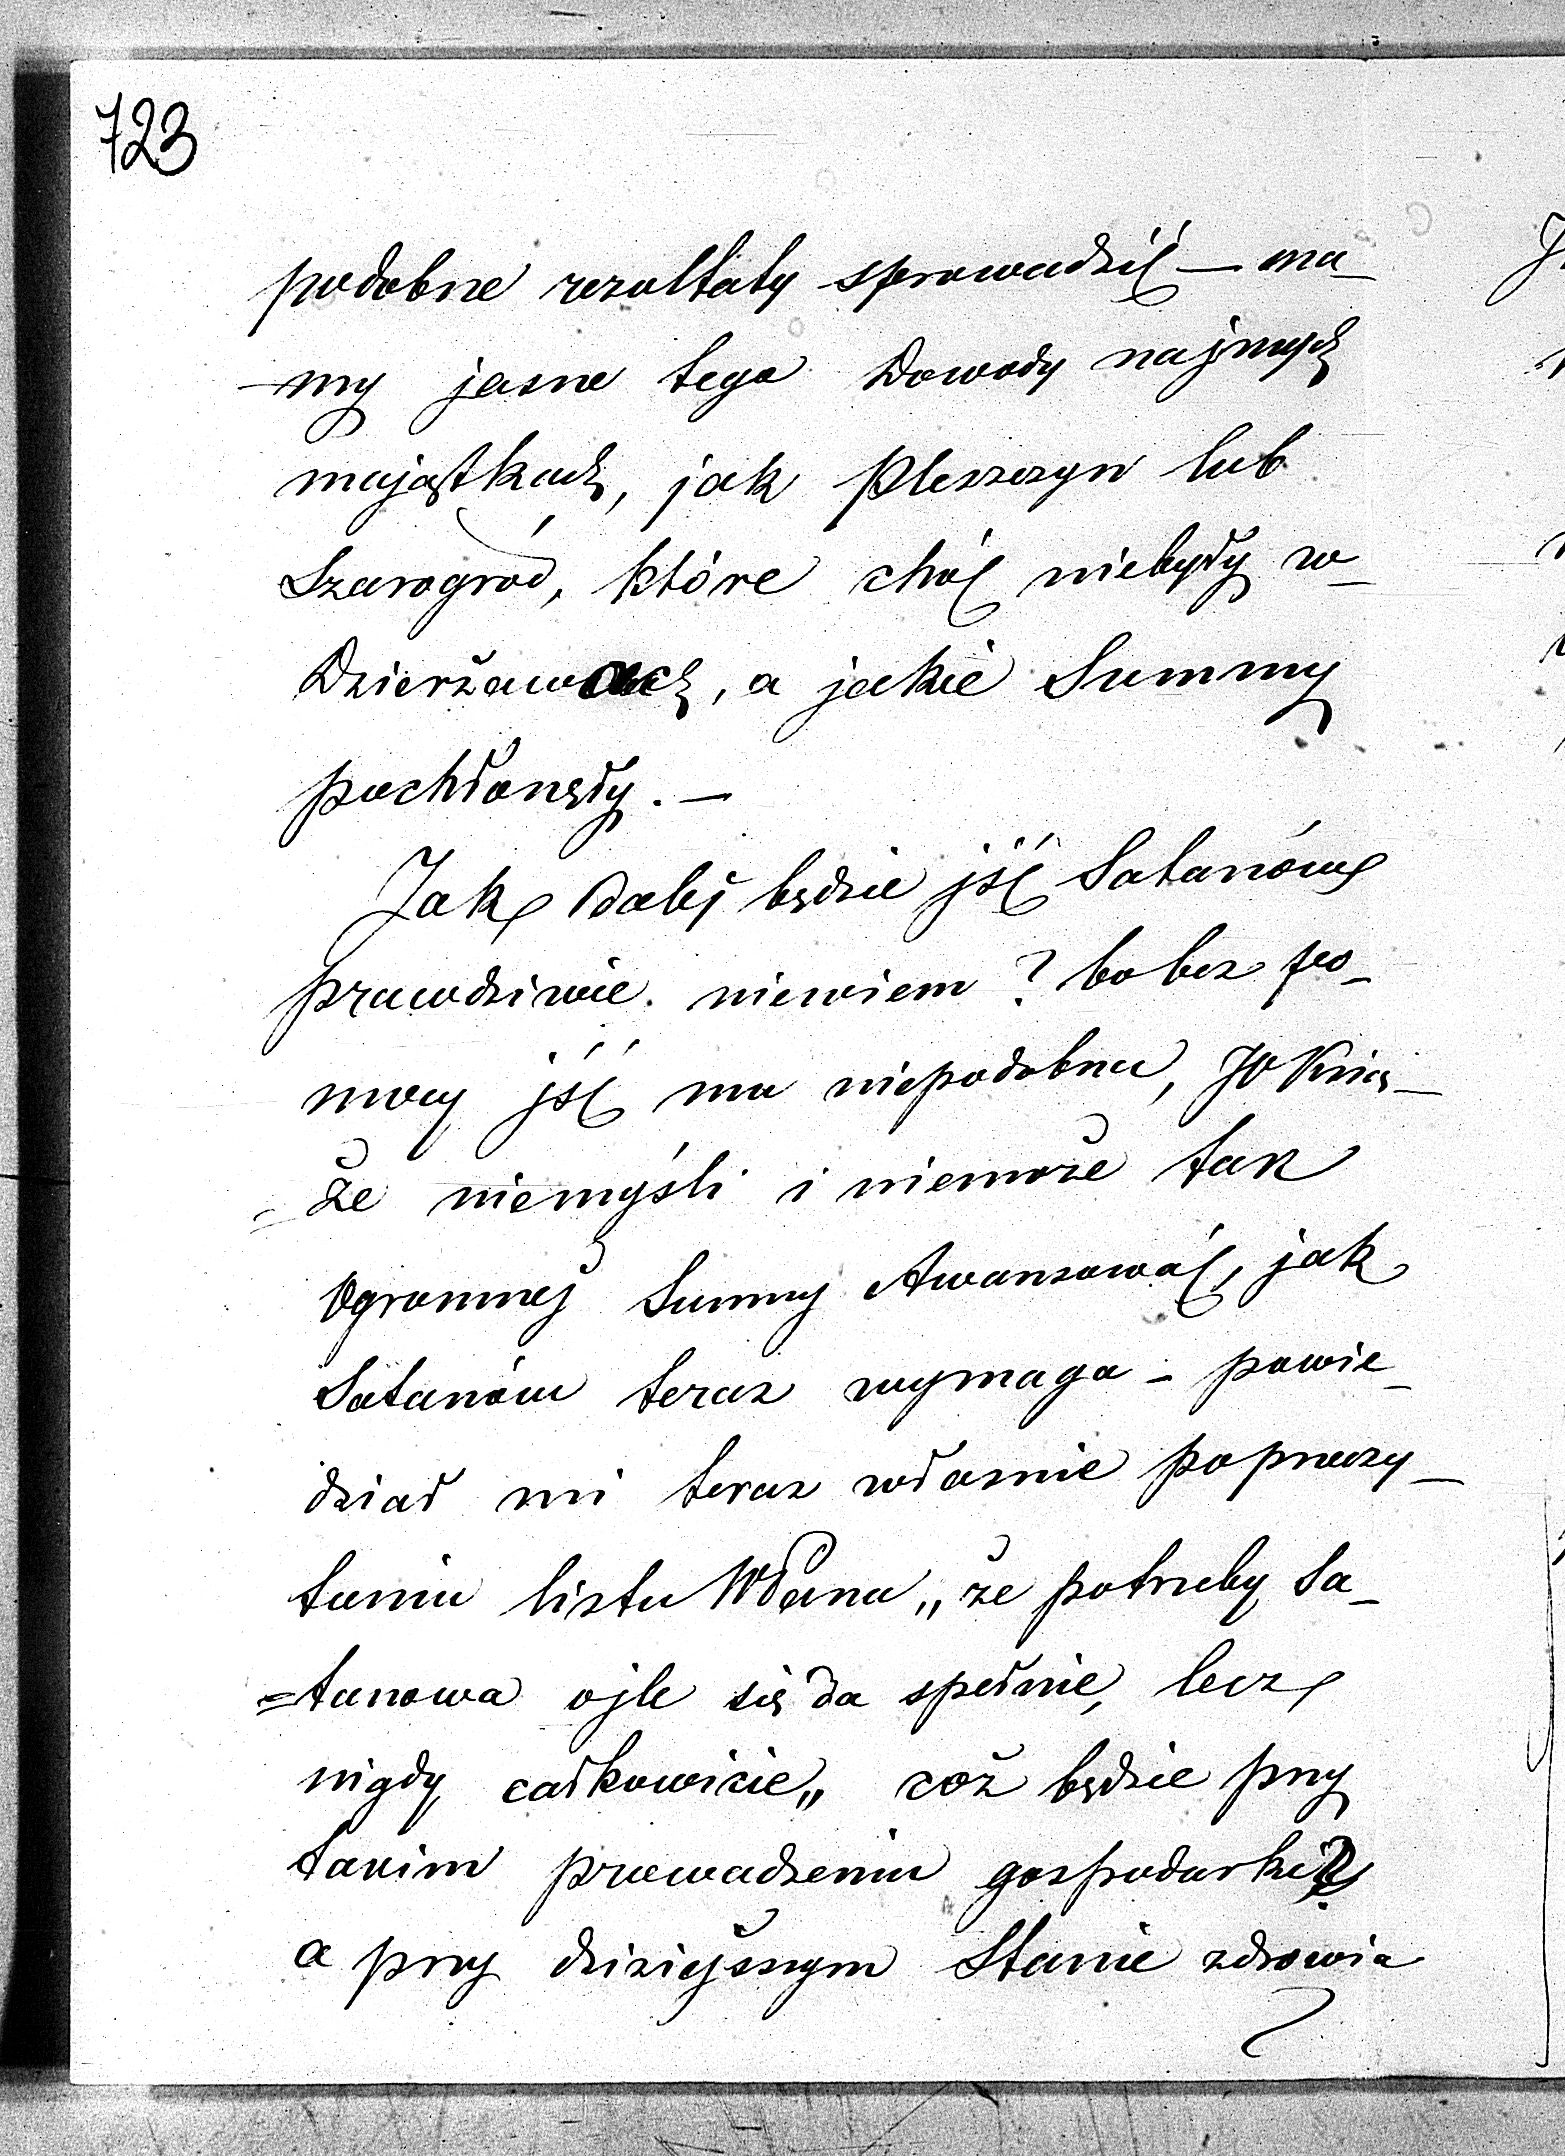 723
podobne rezultaty sprowadzić — ma_
my jasne tego Dowody na jnnych
majątkach, jak Pleszczyn lub
Szarogród, które choć niebyły w_
Dzierżawach, a jakie Summy
pochłonęły. —
Jak daléj będzie jść Satanów
prawdziwie. niewiem? bo bez po_
mocy jść mu niepodobna, JO Xsią_
=że niemyśli i niemoże tak
Ogromnéj Summy Awansować, jak
Satanów teraz wymaga - powie_
dział mi teraz własnie po przeczy_
taniu listu WPana „że potrzeby Sa_
=tanowa ojle się da spełnie, lecz
nigdy całkowicie„ cóż będzie przy
takim prowadzeniu gospodarki?
a przy dzisiejszym Stanie zdrowia